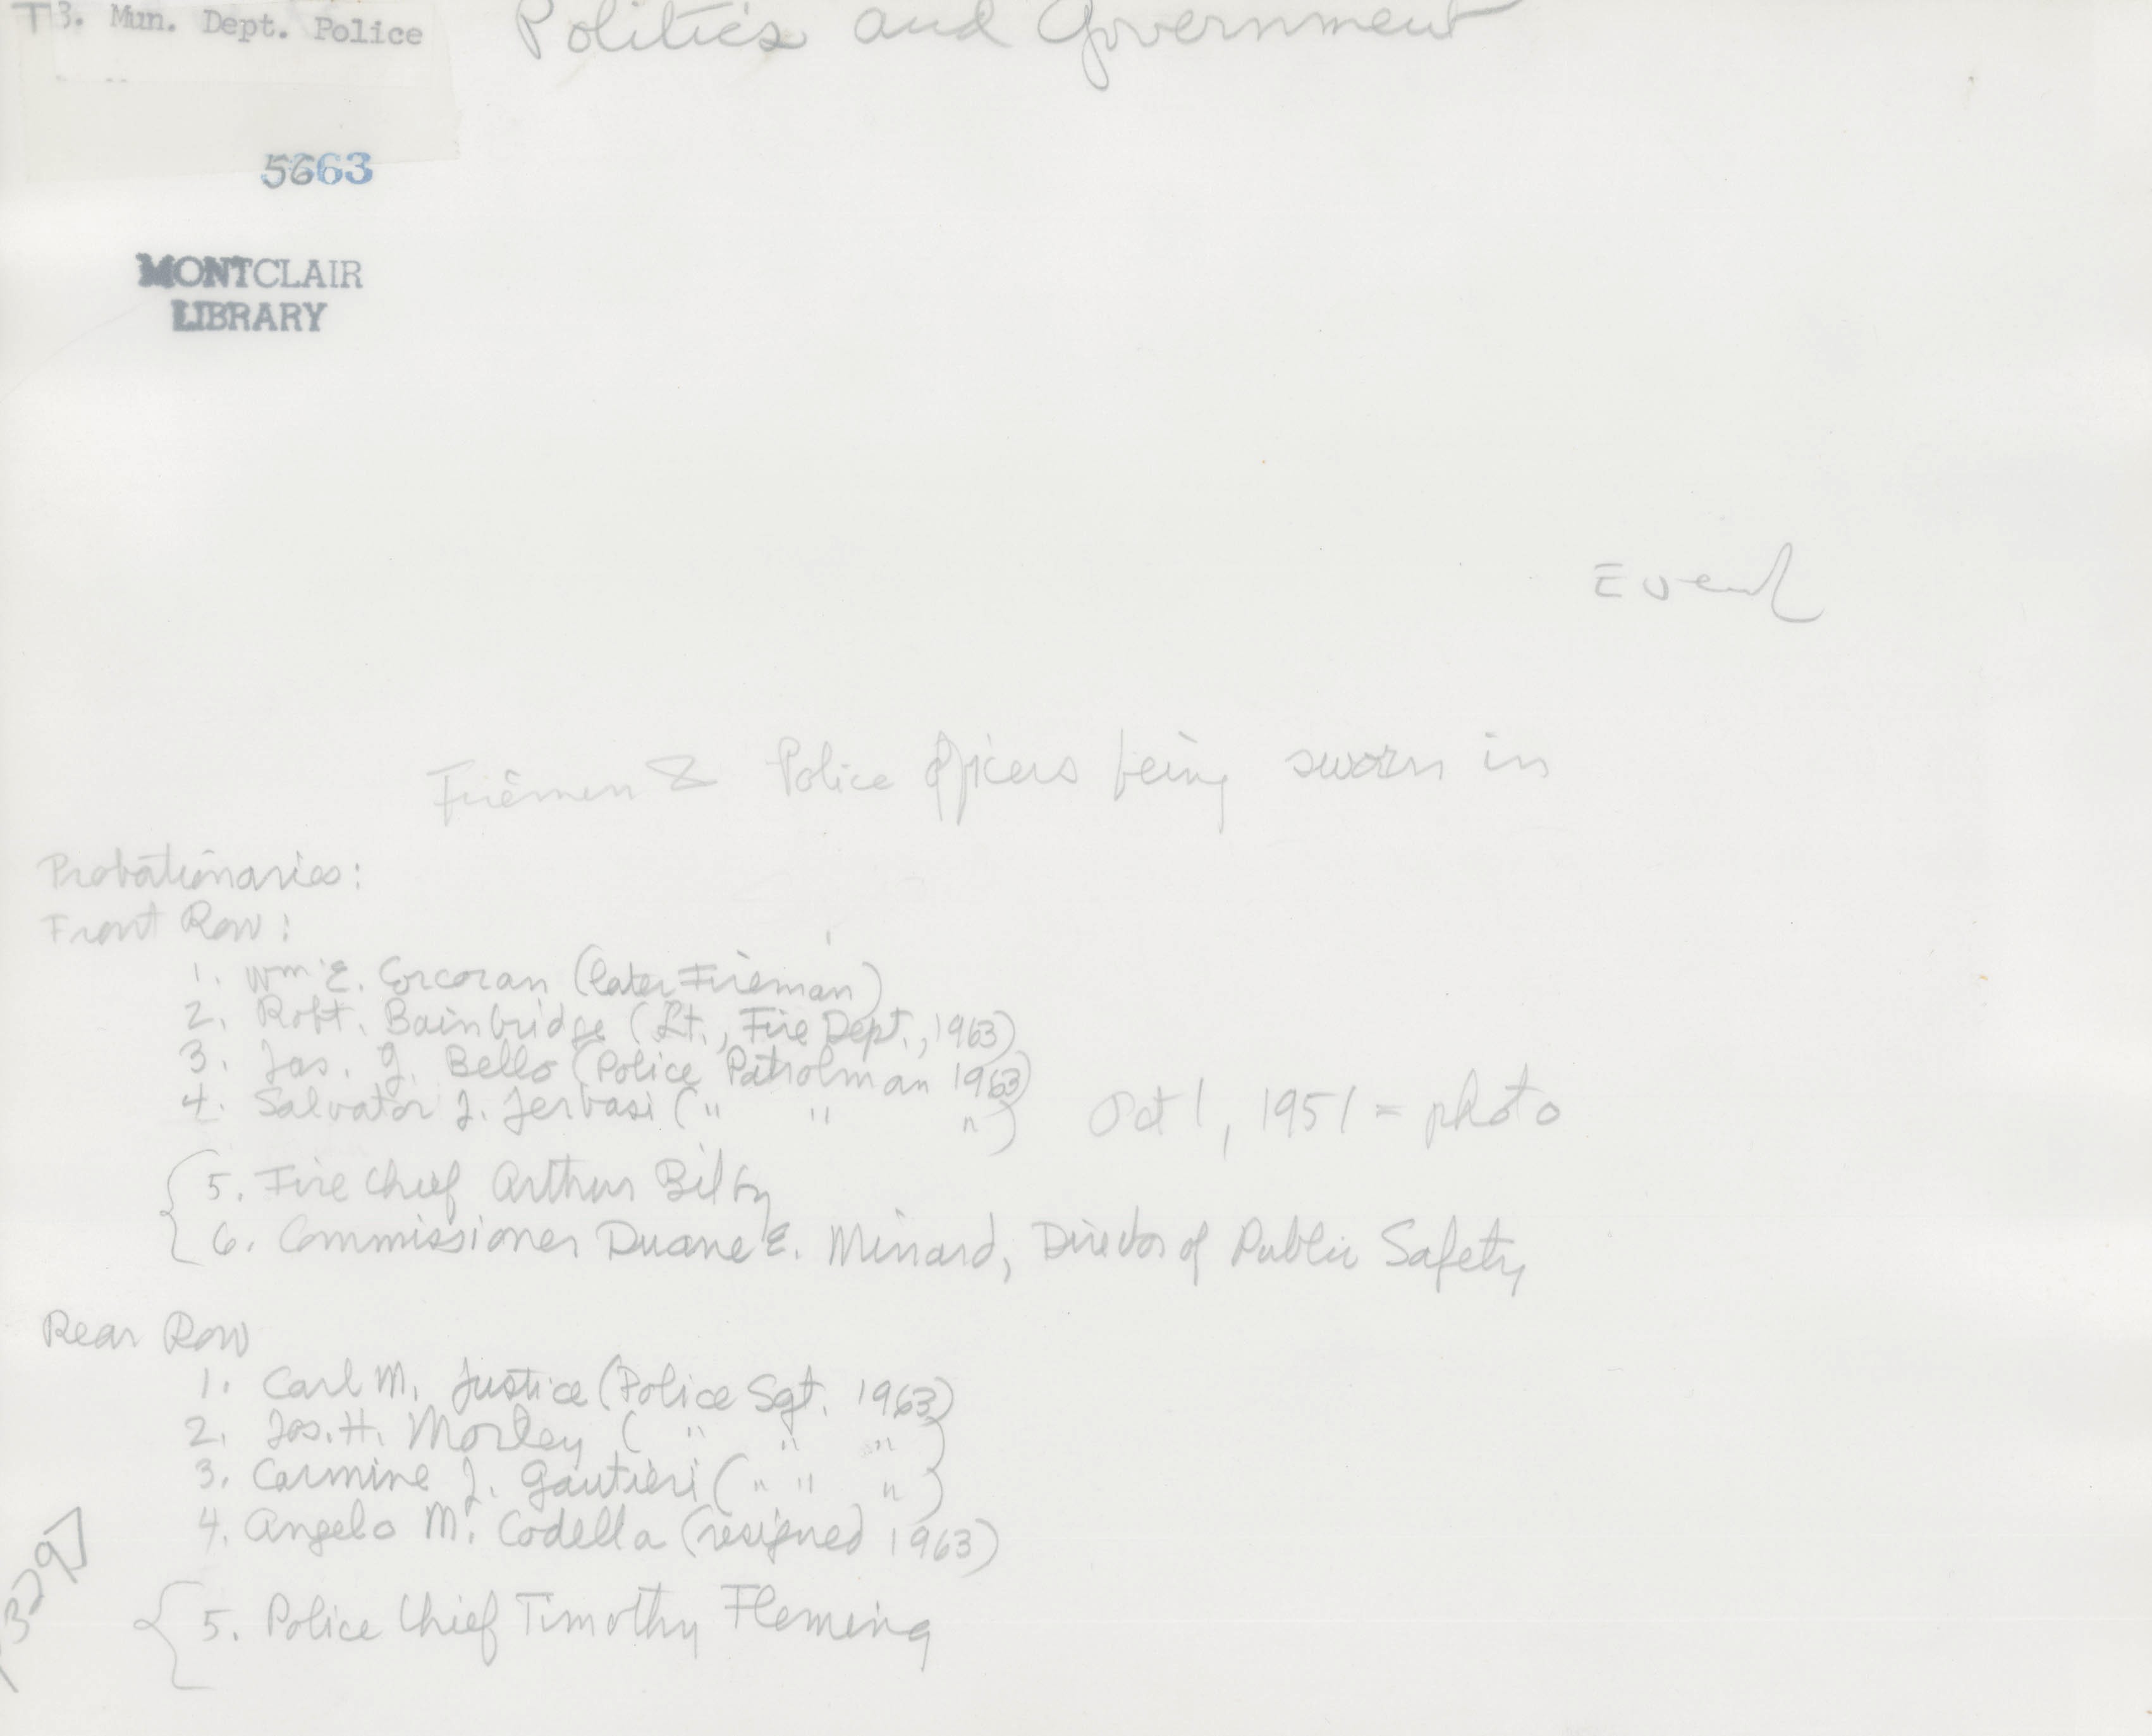 T3. Mun. Dept. Police
Politics and Government
5663
MONTCLAIR
LIBRARY
Event
Firemen & Police officers being sworn in
Probationaries:
Front Row:
1. Wm E. Corcoran (later Fireman)
2. Robt. Bainbridge (Lt., Fire Dept., 1963)
3. Jas. J. Bello (Police Patrolman 1963)
4. Salvator J. Jerbasi (" " ")
Oct 1, 1951 = photo
5. Fire Chief Arthur Bilby
6. Commissioner Duane E. Minard, Director of Public Safety
Rear Row
1. Carl M. Justice (Police Sgt. 1963)
2. Jas. H. Morley ( " " ")
3. Carmine J. Gautieri (" " ")
4. Angelo M. Codella (resigned 1963)
5. Police Chief Timothy Fleming